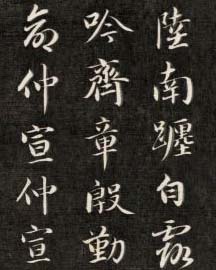 陸南躔白露
吟齊章殷勤
命仲宣仲宣